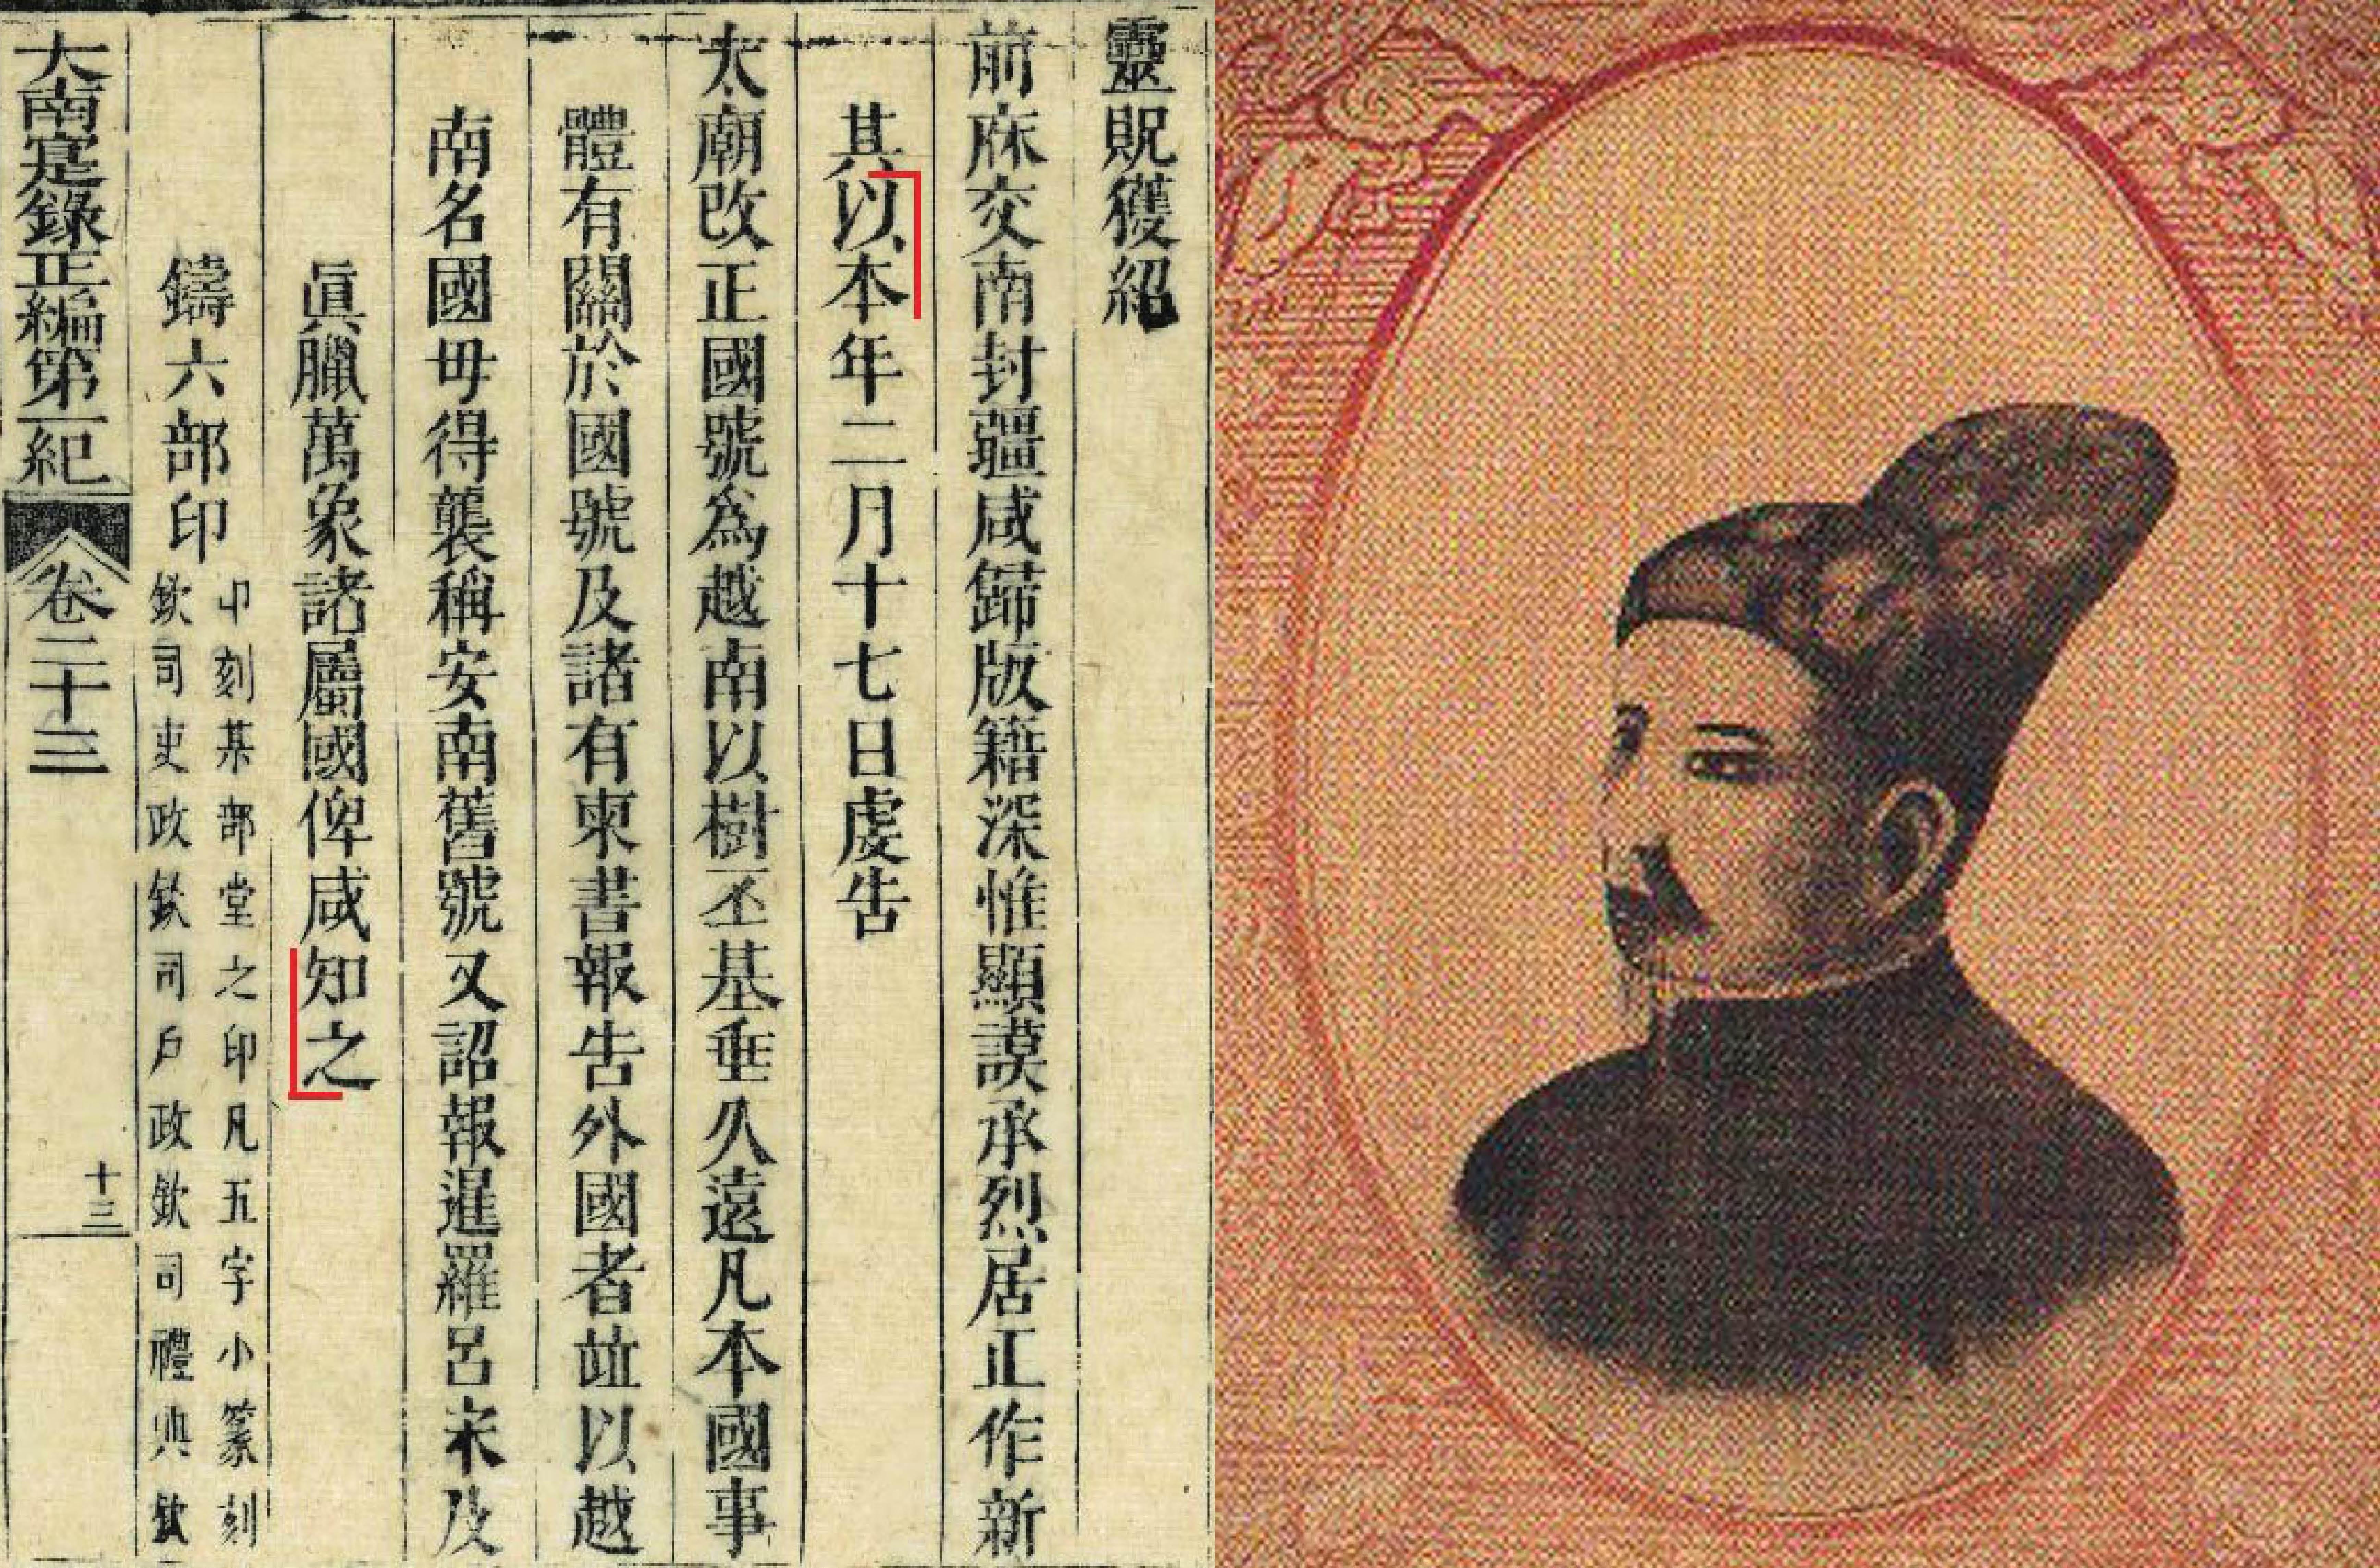 靈貺獲紹
前庥交南封疆咸歸版籍深惟顯謨承烈居正作新
其以本年二月十七日虔告
太廟改正國號為越南以樹丕基垂久遠凡本國事
體有關於國號及諸有柬書報告外國者竝以越
南名國毋得襲稱安南舊號又詔報暹羅呂宋及
真臘萬象諸屬國俾咸知之
鑄六部印
印刻某部堂之印凡五字小篆刻
欽司吏政欽司戶政欽司禮典欽
大南寔錄正編第一紀 卷二十三 十三